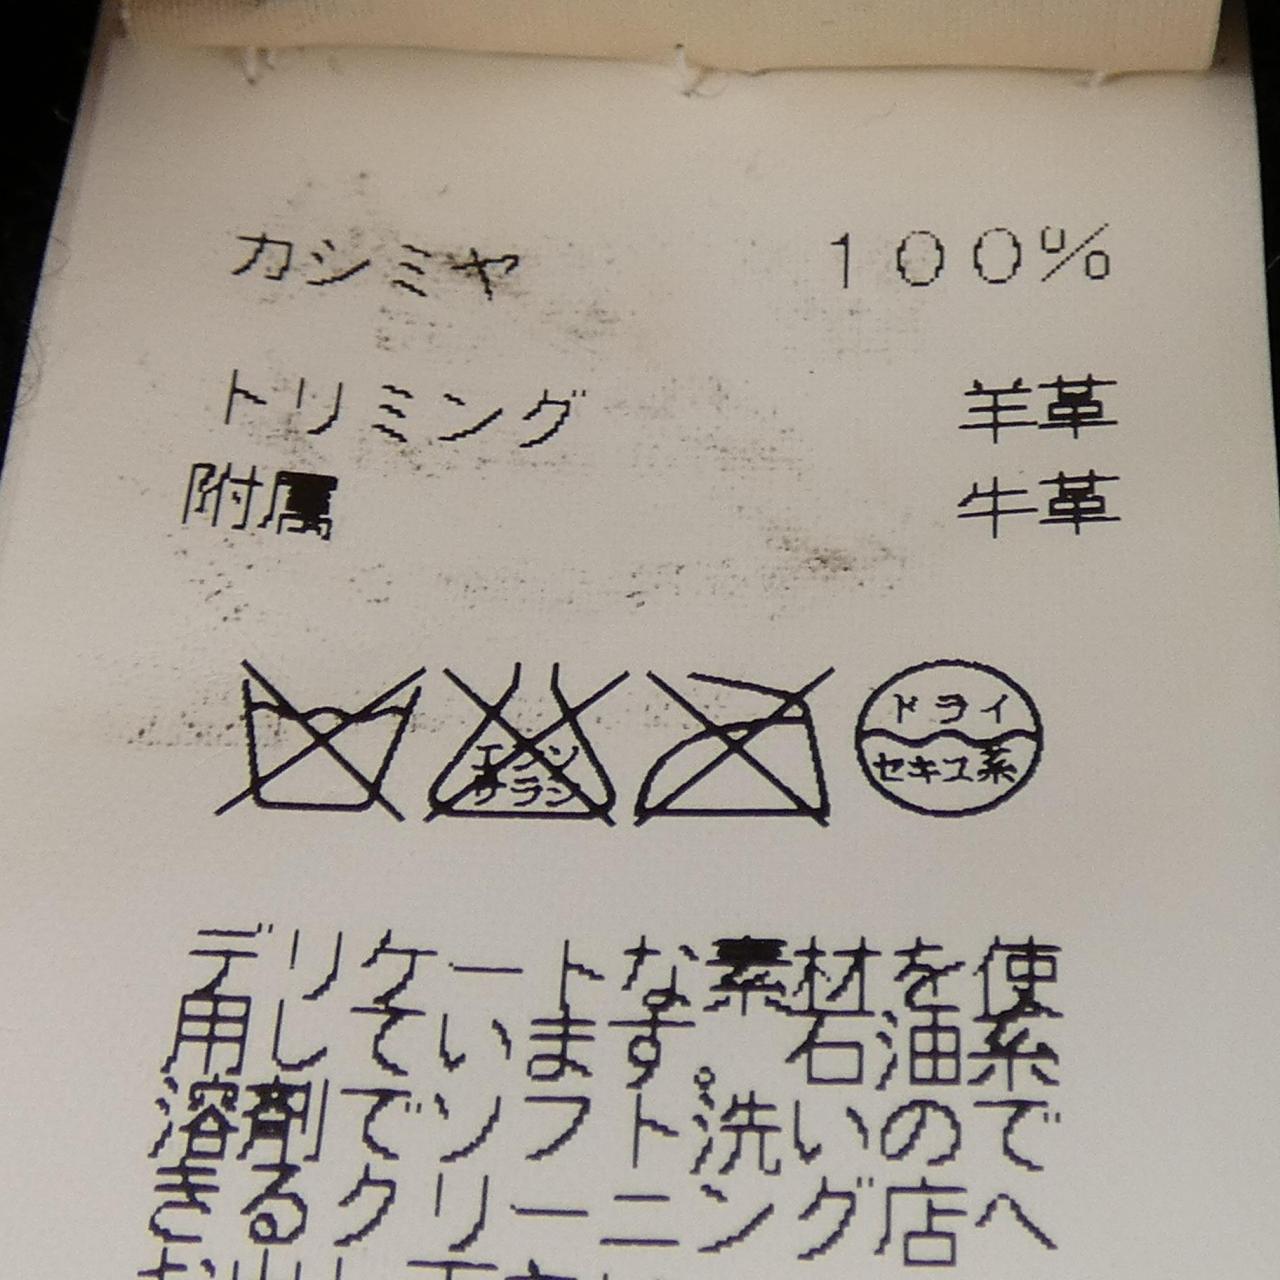 カシミヤ 100%
トリミング 羊革
附属 牛革
エンソ
サラシ
ドライ
セキユ系
デリケートな素材を使
用しています。石油系
溶剤でソフト洗いので
きるクリーニング店へ
お出し下さい